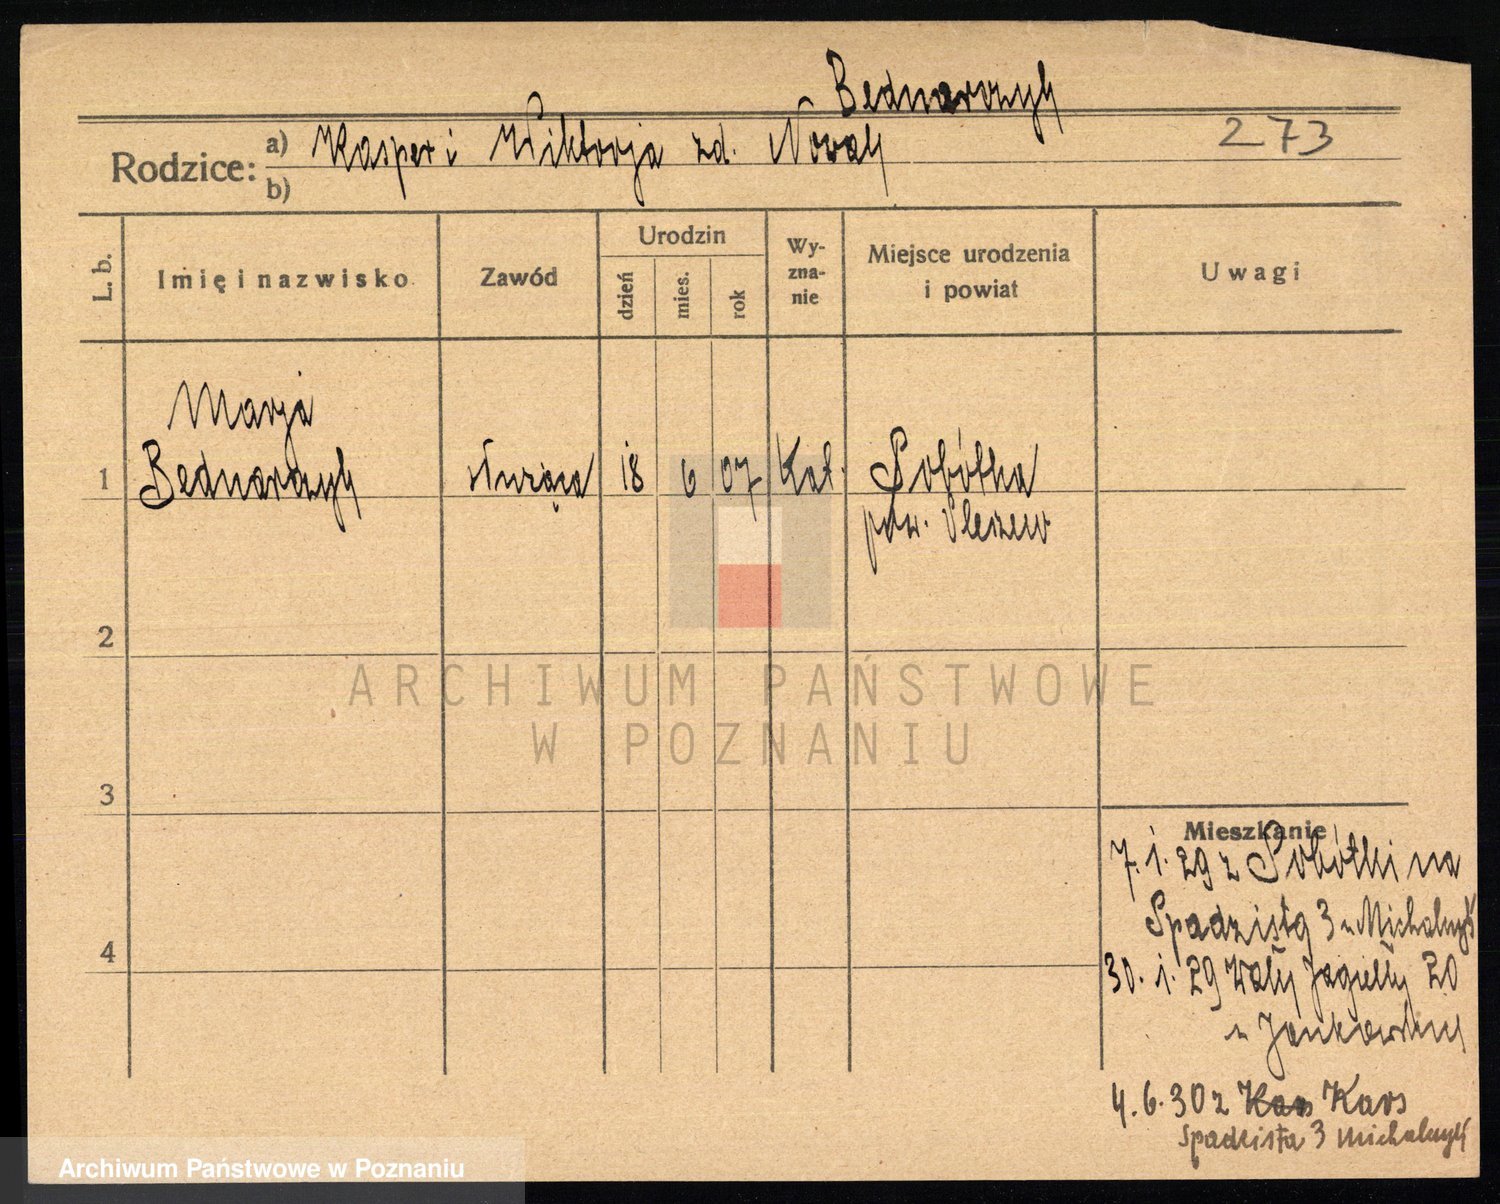 Bednarczyk
Rodzice: a) Kasper i Wiktorja zd. Nowak
273
b)
L. b.
Imię i nazwisko
Zawód
Urodzin
dzień
mies.
rok
Wy-
zna-
nie
Miejsce urodzenia
i powiat
Uwagi
Marja
1 Bednarczyk służąca 18 6 07 Kat. Sobótka
pow. Pleszew
2
ARCHIWUM PAŃSTWOWE
W POZNANIU
3
Mieszkanie
7. 1. 29 z Sobótki na
Spadzista 3 u Michalczyk
4
30. 1. 29 Wały Jagiełły 20
u Jankowskiej
4. 6. 30 z Kars
Spadzista 3 Michalczyk
Archiwum Państwowe w Poznaniu